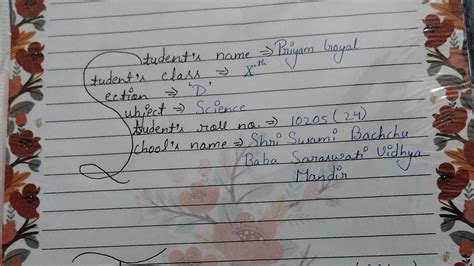 Student's name ⇒ Priyam Goyal
Student's class ⇒ Xth
Section ⇒ 'D'
Subject ⇒ Science
Student's roll no. ⇒ 10205 (24)
School's name ⇒ Shri Swami Bachchu
Baba Saraswati Vidhya
Mandir